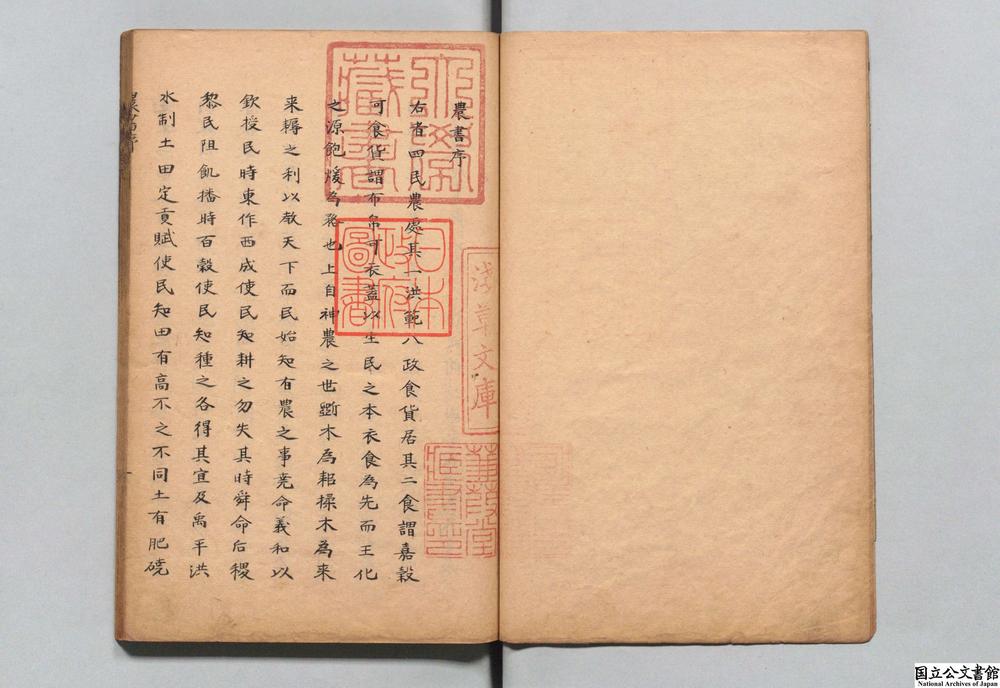 農書序
右者四民農處其一洪範八政食貨居其二食謂嘉穀
可食貨謂布帛可衣蓋以生民之本衣食為先而王化
之源飽煖為務也上自神農之世斲木為耜揉木為来
来耨之利以教天下而民始知有農之事堯命義和以
欽授民時東作西成使民知耕之勿失其時舜命后稷
黎民阻飢播時百穀使民知種之各得其宜及禹平洪
水制土田定貢賦使民知田有高不之不同土有肥磽
農書序
藏書
日本
政府
圖書
浅草文庫
蒹葭堂
藏書印
国立公文書館
National Archives of Japan